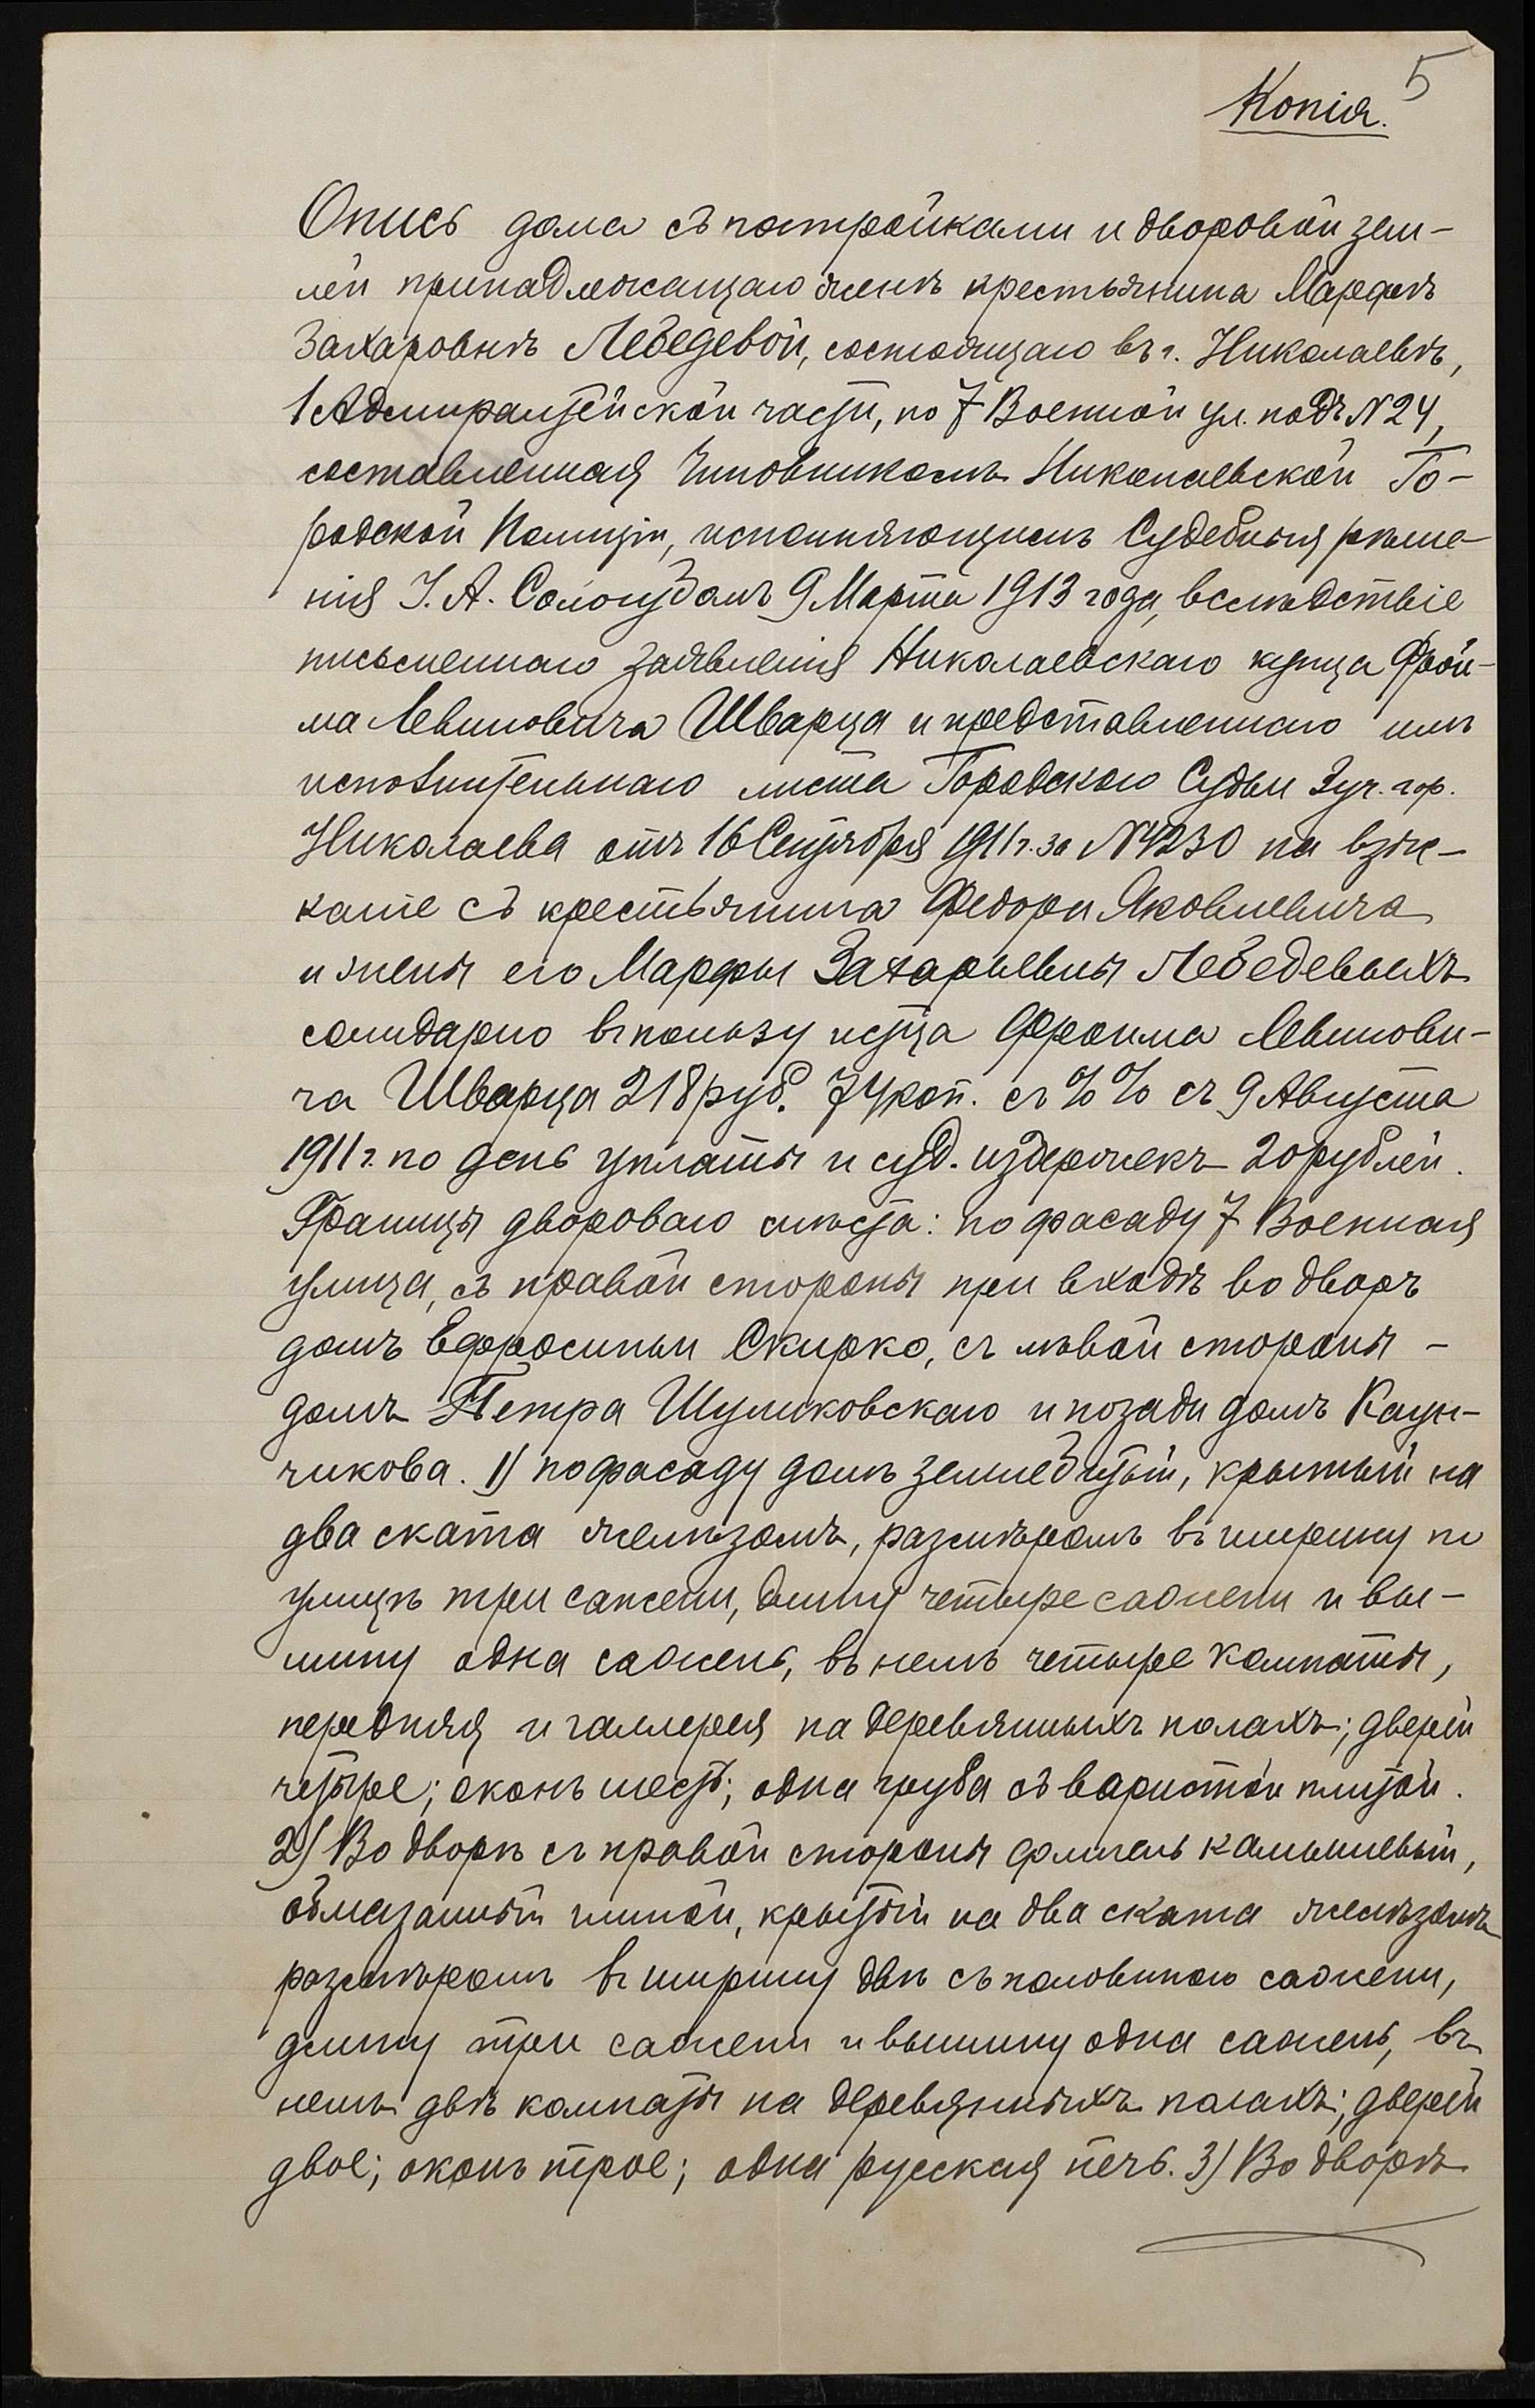 5
Копія.
Опись дома съ постройками и дворовой зем-
лей принадлежащаго женѣ крестьянина Марфѣ
Захаровнѣ Лебедевой, состоящаго въ г. Николаевѣ,
1 Адмиралтейской части, по 7 Военной ул. подъ N 24,
составленная Чиновникомъ Николаевской Го-
родской Полиціи, исполняющимъ Судебныя рѣше-
нія І. А. Сологубомъ 9 Марта 1913 года, вслѣдствіе
письменнаго заявленія Николаевскаго купца Фрои-
ма Левиновича Шварца и представленнаго имъ
исполнительнаго листа Городского Судьи 3 уч. гор.
Николаева отъ 16 Сентября 1911 г. за N 4230 на взы-
каніе съ крестьянина Федора Яковлевича
и жены его Марфы Захарьевны Лебедевыхъ
солидарно въ пользу истца Фроима Левинови-
ча Шварца 218 руб. 74 коп. съ % % съ 9 Августа
1911 г. по день уплаты и суд. издержекъ 20 рублей.
Границы дворового мѣста: по фасаду 7 Военная
улица, съ правой стороны при входѣ во дворъ
домъ Ефросиньи Скирко, съ лѣвой стороны -
домъ Петра Шумиковскаго и позади домъ
чикова. 1) по фасаду домъ землебитый, крытый на
два ската желѣзомъ, размѣромъ въ ширину по
улицѣ три сажени, длину четыре сажени и вы-
шину одна сажень, въ немъ четыре комнаты,
передняя и галлерея на деревянныхъ полахъ; дверей
четыре; оконъ шесть; одна груба съ варистой плитой.
2) Во дворѣ съ правой стороны флигель камышевый,
обмазанный глиной, крытый на два ската желѣзомъ
размѣромъ въ ширину двѣ съ половиною сажени,
длину три сажени и вышину одна сажень, въ
немъ двѣ комнаты на деревянныхъ полахъ; дверей
двое; оконъ трое; одна русская печь. 3) Во дворѣ